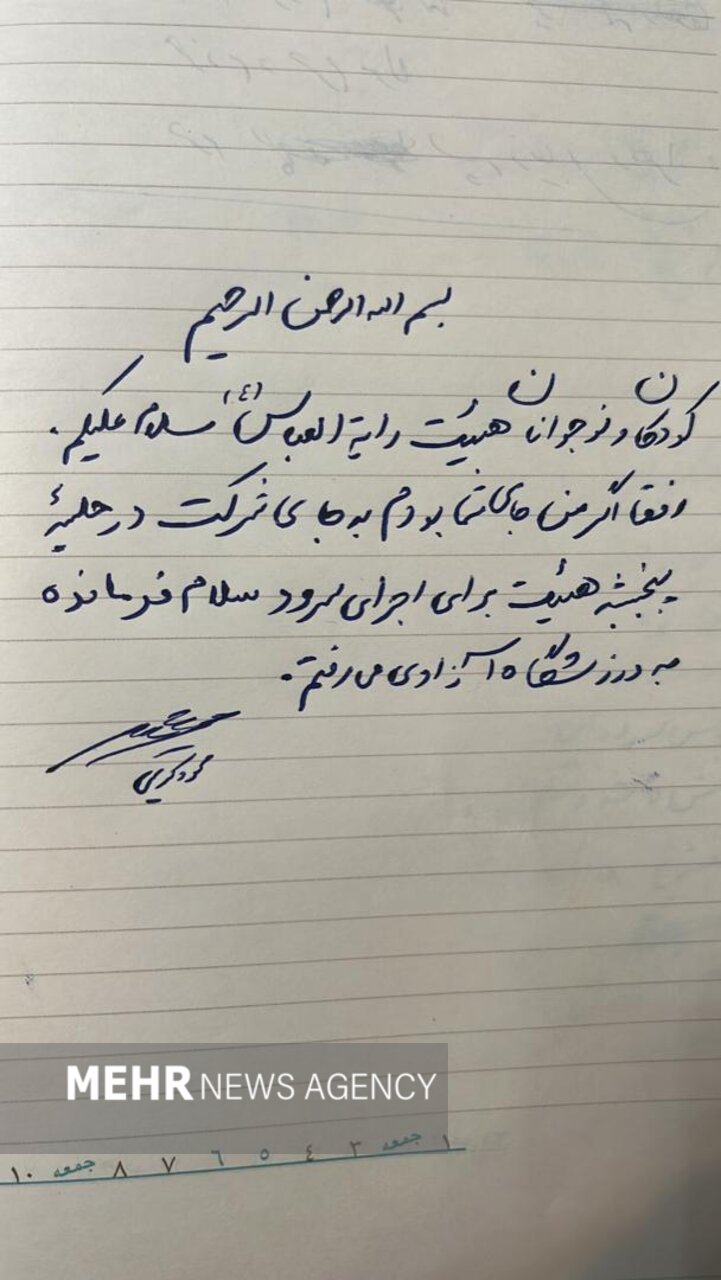 بسم الله الرحمن الرحیم
کودکان و نوجوانان هیئت رایة العباس (ع) سلام علیکم.
رفقا اگر من جای شما بودم به جای شرکت در جلسهٔ
پنجشنبه هیئت برای اجرای سرود سلام فرمانده
به ورزشگاه آزادی می رفتم.
محمود کریمی
MEHR NEWS AGENCY
۱ جمعه ۳ ٤ ٥ ٦ ۷ ۸ جمعه ۱۰